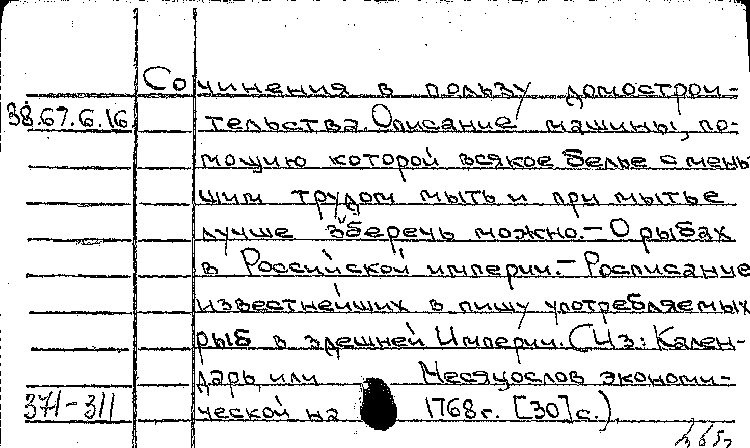 Сочинения в пользу домострои-
38.67.6.16 тельства. Описание машины, по-
мощию которой всякое белье с мень
шим трудом мыть и при мытье
лучше збберечь можно.- О рыбах
в Российской империи.- Росписание
известнейших в пищу употребляемых
рыб в здешней Империи. (Из: Кален-
дарь, или Месяцослов экономи-
371-311 ческой на 1768 г. [30] с.)